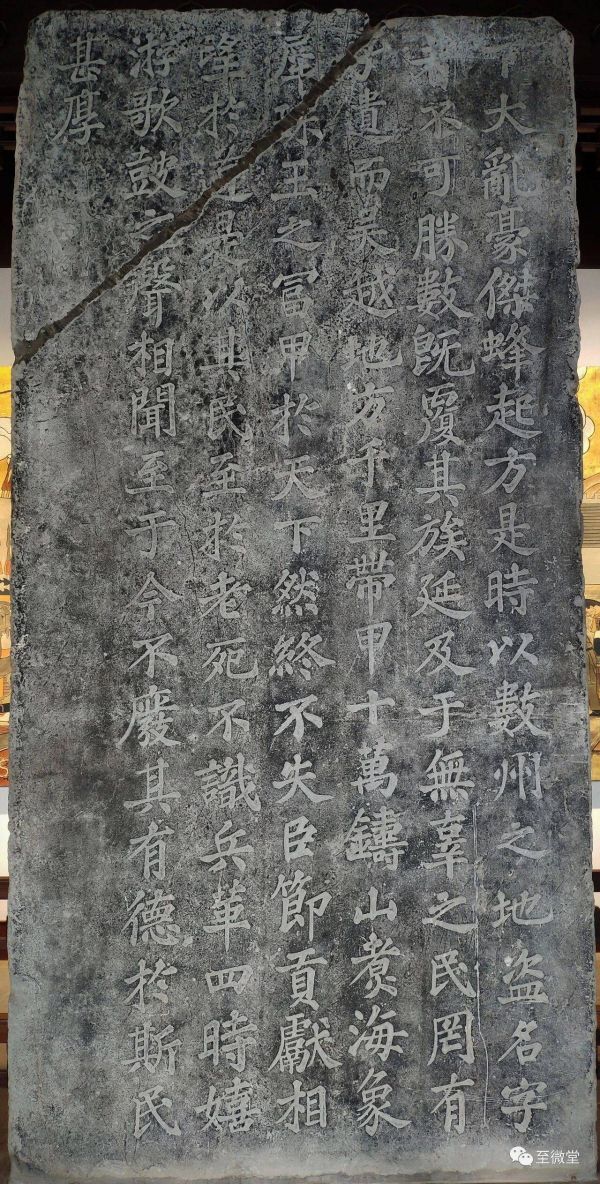 下大亂豪傑蜂起方是時以數州之地盜名字
者不可勝數既覆其族延及于無辜之民罔有
孑遺而吳越地方千里帶甲十萬鑄山煑海象
犀珠玉之冨甲於天下然終不失臣節貢獻相
望於道是以其民至於老死不識兵革四時嬉
游歌鼓之聲相聞至于今不廢其有德於斯民
甚厚
至微堂